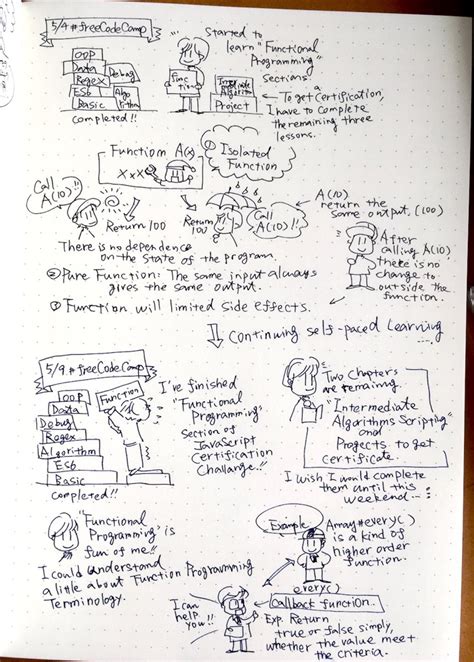 5/4 #freeCodeCamp
OOP
Data
Debug
Regex
ES6
Algo
rithm
Basic
completed!!
func
tion
Started to
learn "Functional
Programming"
Sections.
Intermediate
Algorithm
Project
To get a Certification,
I have to complete
the remaining three
lessons.
Function A(x)
XxX
① Isolated
Function
Call
A(10)!!
Return 100
Return
100
Call
A(10)!!
A(10)
return the
same output. (100)
There is no dependence
on the state of the program.
After
calling A(10)
there is no
change to
outside the
function.
② Pure Function: The same input always
gives the same output.
③ Function will limited side effects.
Continuing self-paced Learning
5/9 #freeCodeCamp
OOP
Data
Debug
Regex
Algorithm
ES6
Basic
completed!!
Function
I've finished
"Functional
Programming"
Section of
JavaScript
Certification
Challange!!
Two Chapters
are remaining
"Intermediate
Algorithms Scripting"
and
Projects to get
certificate.
I wish I would complete
them until this
weekend...
"Functional
Programming" is
fun of me!!
I could understand
a little about Function Programming
Terminology.
Example
Array#every()
is a kind of
higher order
function.
every()
I can
help you!!
callback function.
Exp. Return
true or false simply,
whether the value meet
the criteria.